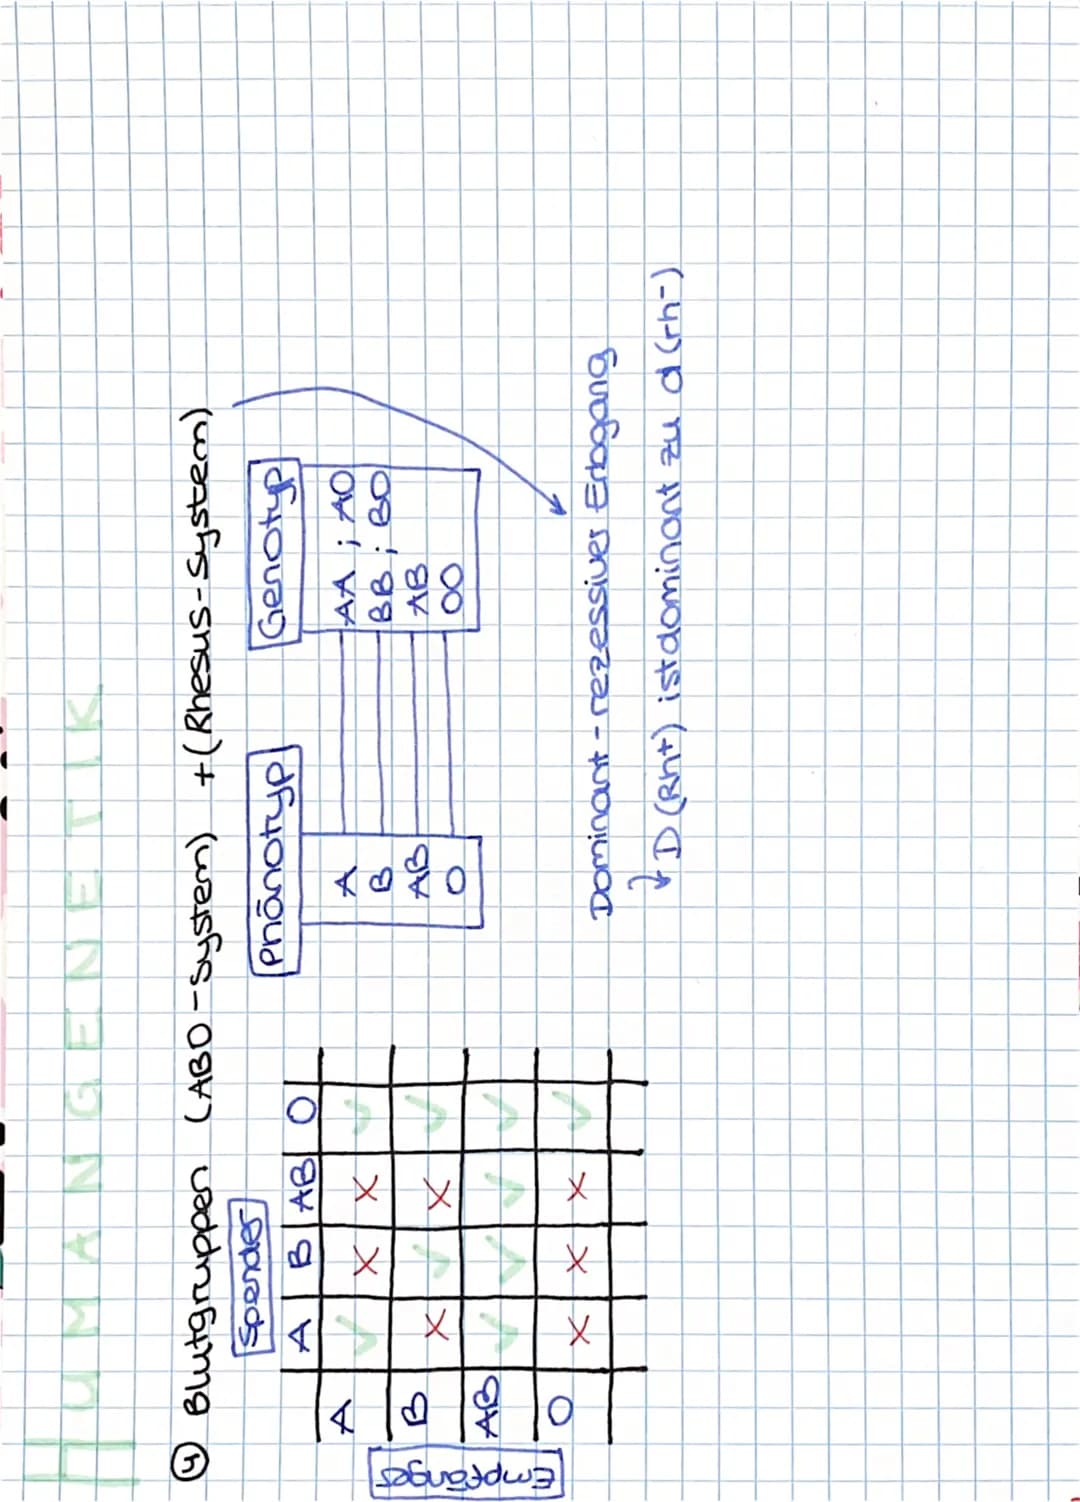 HUMANGENETIK
④ Blutgruppen (ABO-System) +(Rhesus-System)
Spender
A B AB O
Empfänger
A ✓ X X ✓
B X ✓ X ✓
AB ✓ ✓ ✓ ✓
O X X X ✓
Phänotyp Genotyp
A AA ; AO
B BB ; BO
AB AB
O OO
Dominant-rezessiver Erbgang
↳ D (Rh+) ist dominant zu d (rh-)